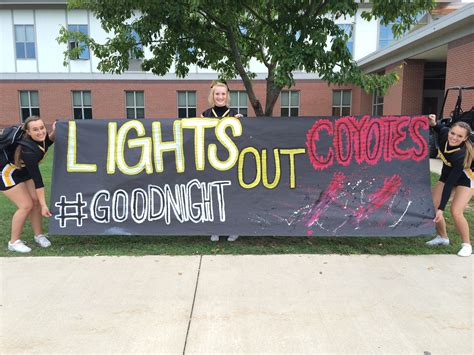 LIGHTS OUT COYOTES
#GOODNIGHT